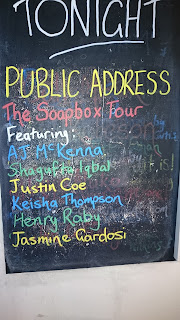 TONIGHT
PUBLIC ADDRESS
The Soapbox Tour
Featuring:
AJ McKenna
Shagufta Iqbal
Justin Coe
Keisha Thompson
Henry Raby
Jasmine Gardosi